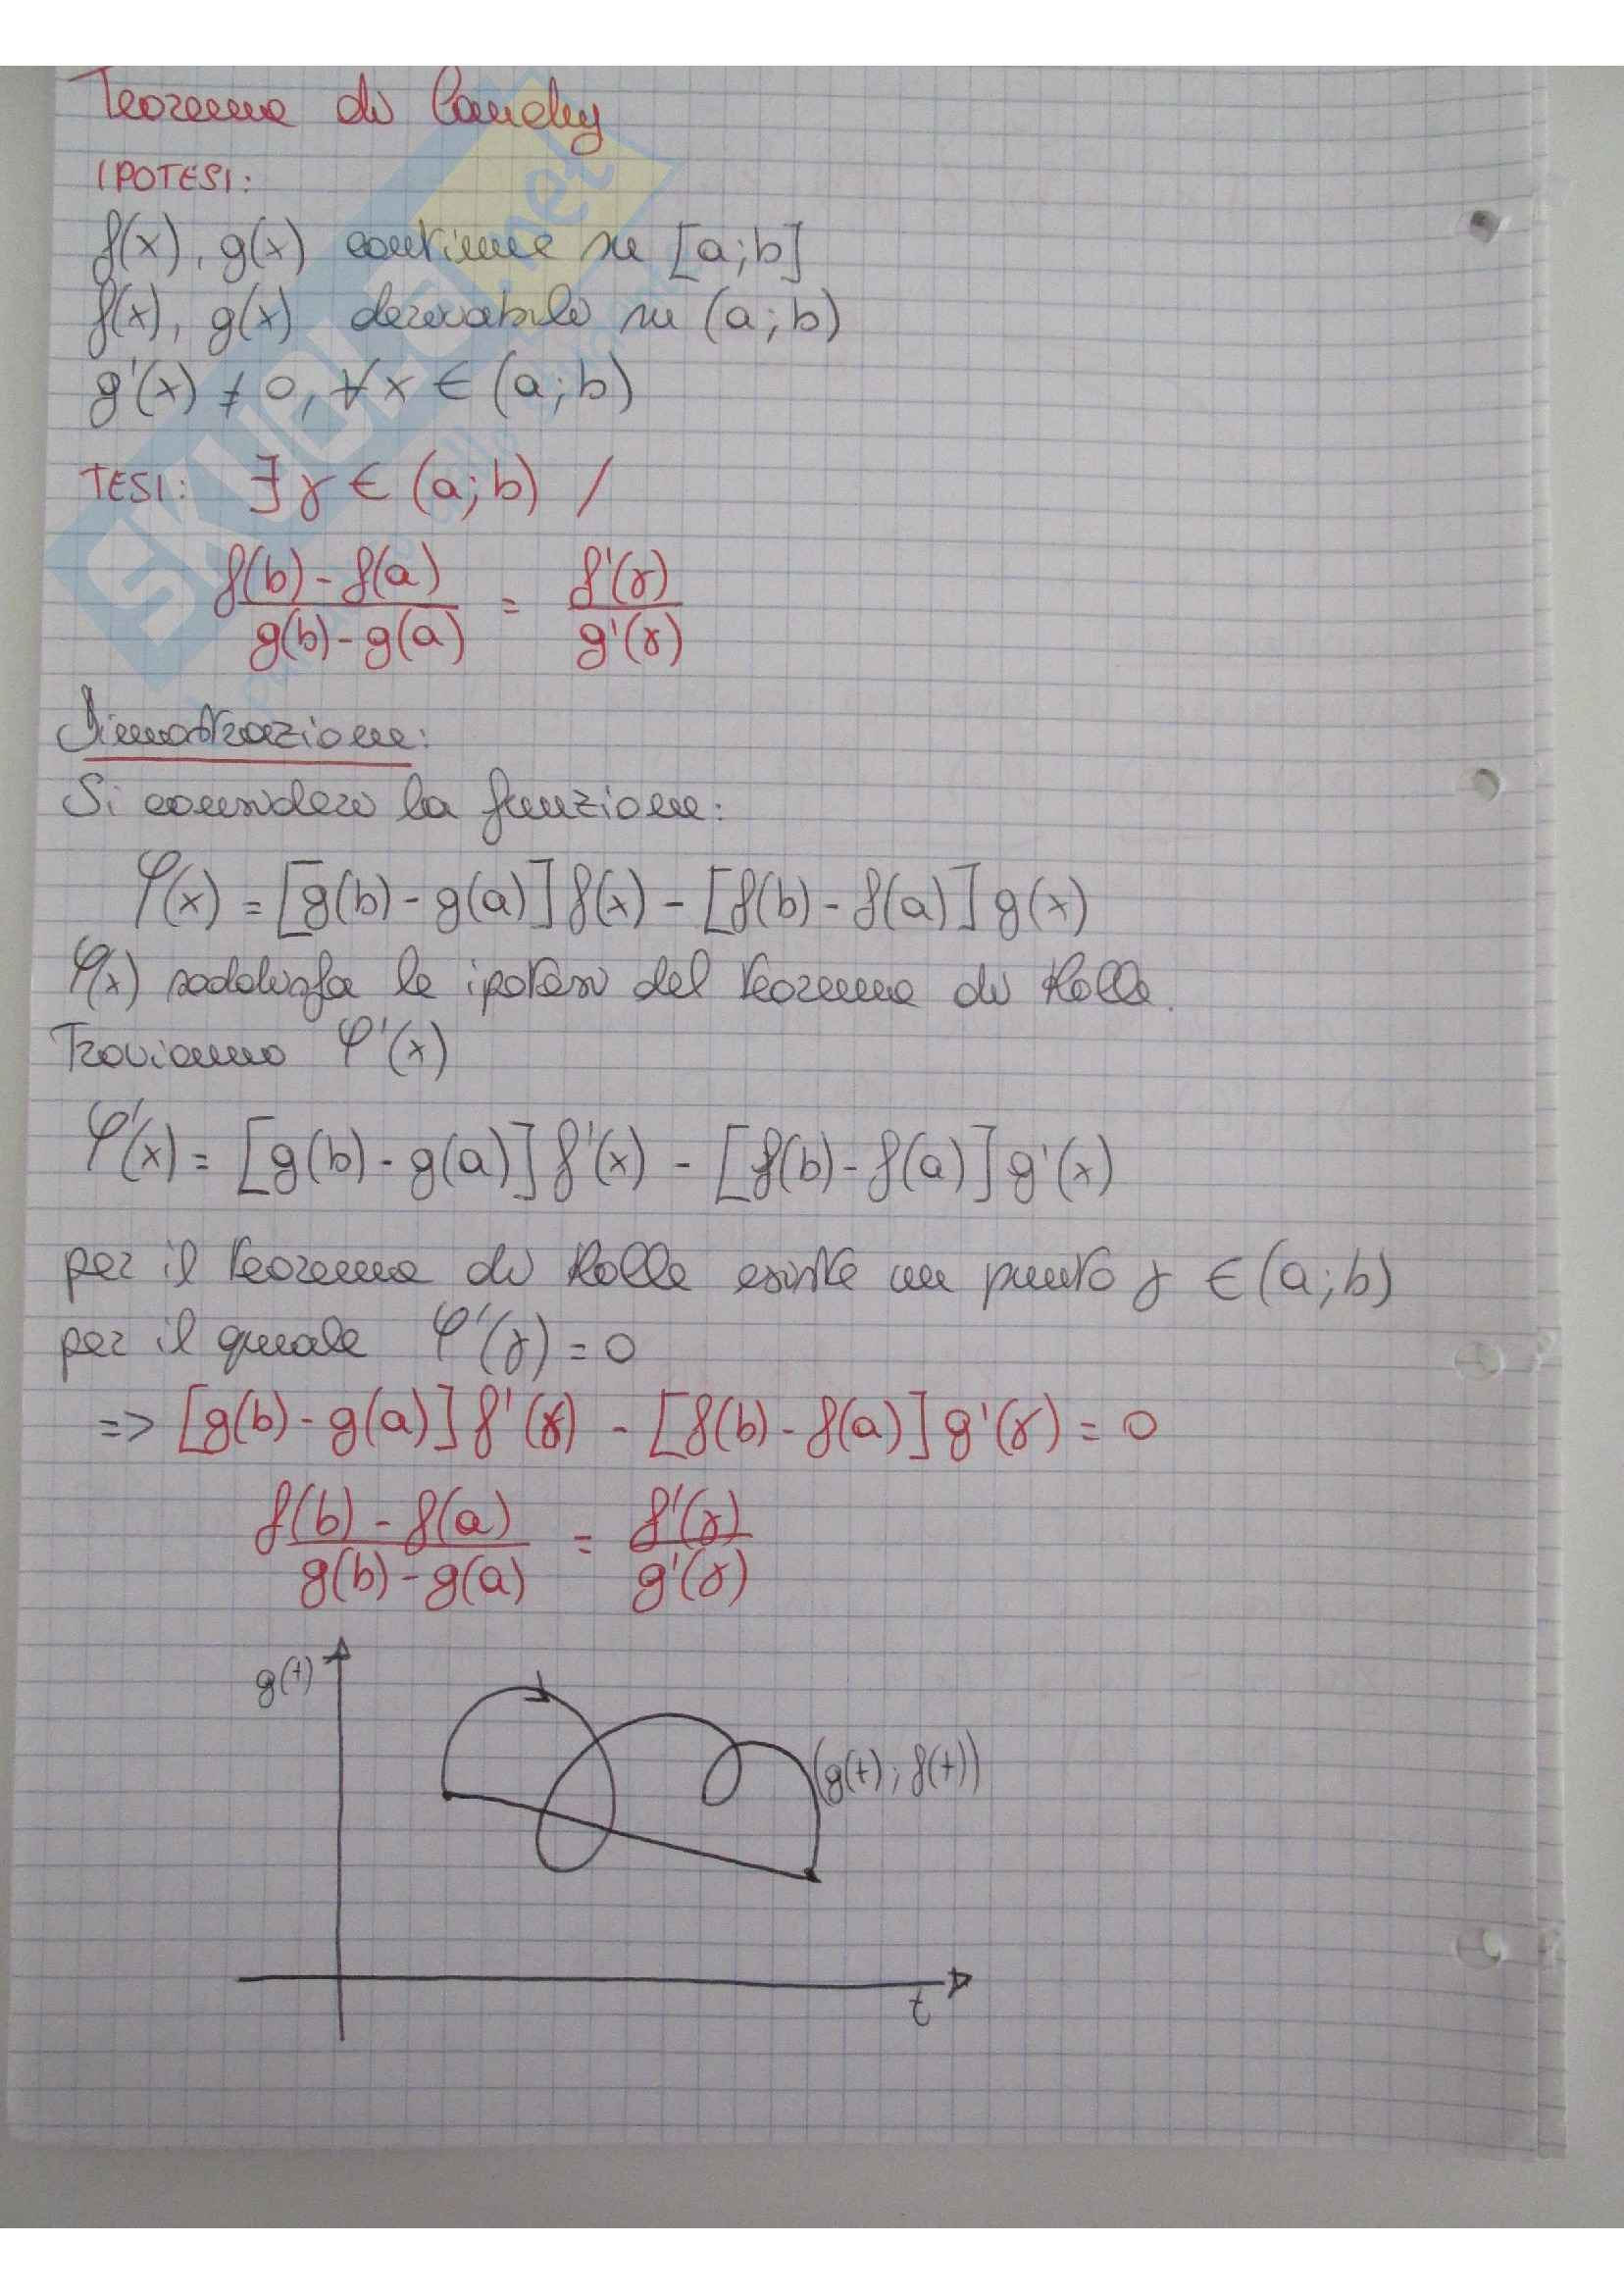 Teorema di Cauchy
IPOTESI:
f(x), g(x) continue su [a;b]
f(x), g(x) derivabili su (a;b)
g'(x) ≠ 0, ∀x ∈ (a;b)
TESI: ∃ γ ∈ (a;b) /
f(b) - f(a) / g(b) - g(a) = f'(γ) / g'(γ)
Dimostrazione:
Si consideri la funzione:
φ(x) = [g(b) - g(a)] f(x) - [f(b) - f(a)] g(x)
φ(x) soddisfa le ipotesi del teorema di Rolle.
Troviamo φ'(x)
φ'(x) = [g(b) - g(a)] f'(x) - [f(b) - f(a)] g'(x)
per il teorema di Rolle esiste un punto γ ∈ (a;b)
per il quale φ'(γ) = 0
=> [g(b) - g(a)] f'(γ) - [f(b) - f(a)] g'(γ) = 0
f(b) - f(a) / g(b) - g(a) = f'(γ) / g'(γ)
g(t)
(g(t); f(t))
t
SKUOLA.net